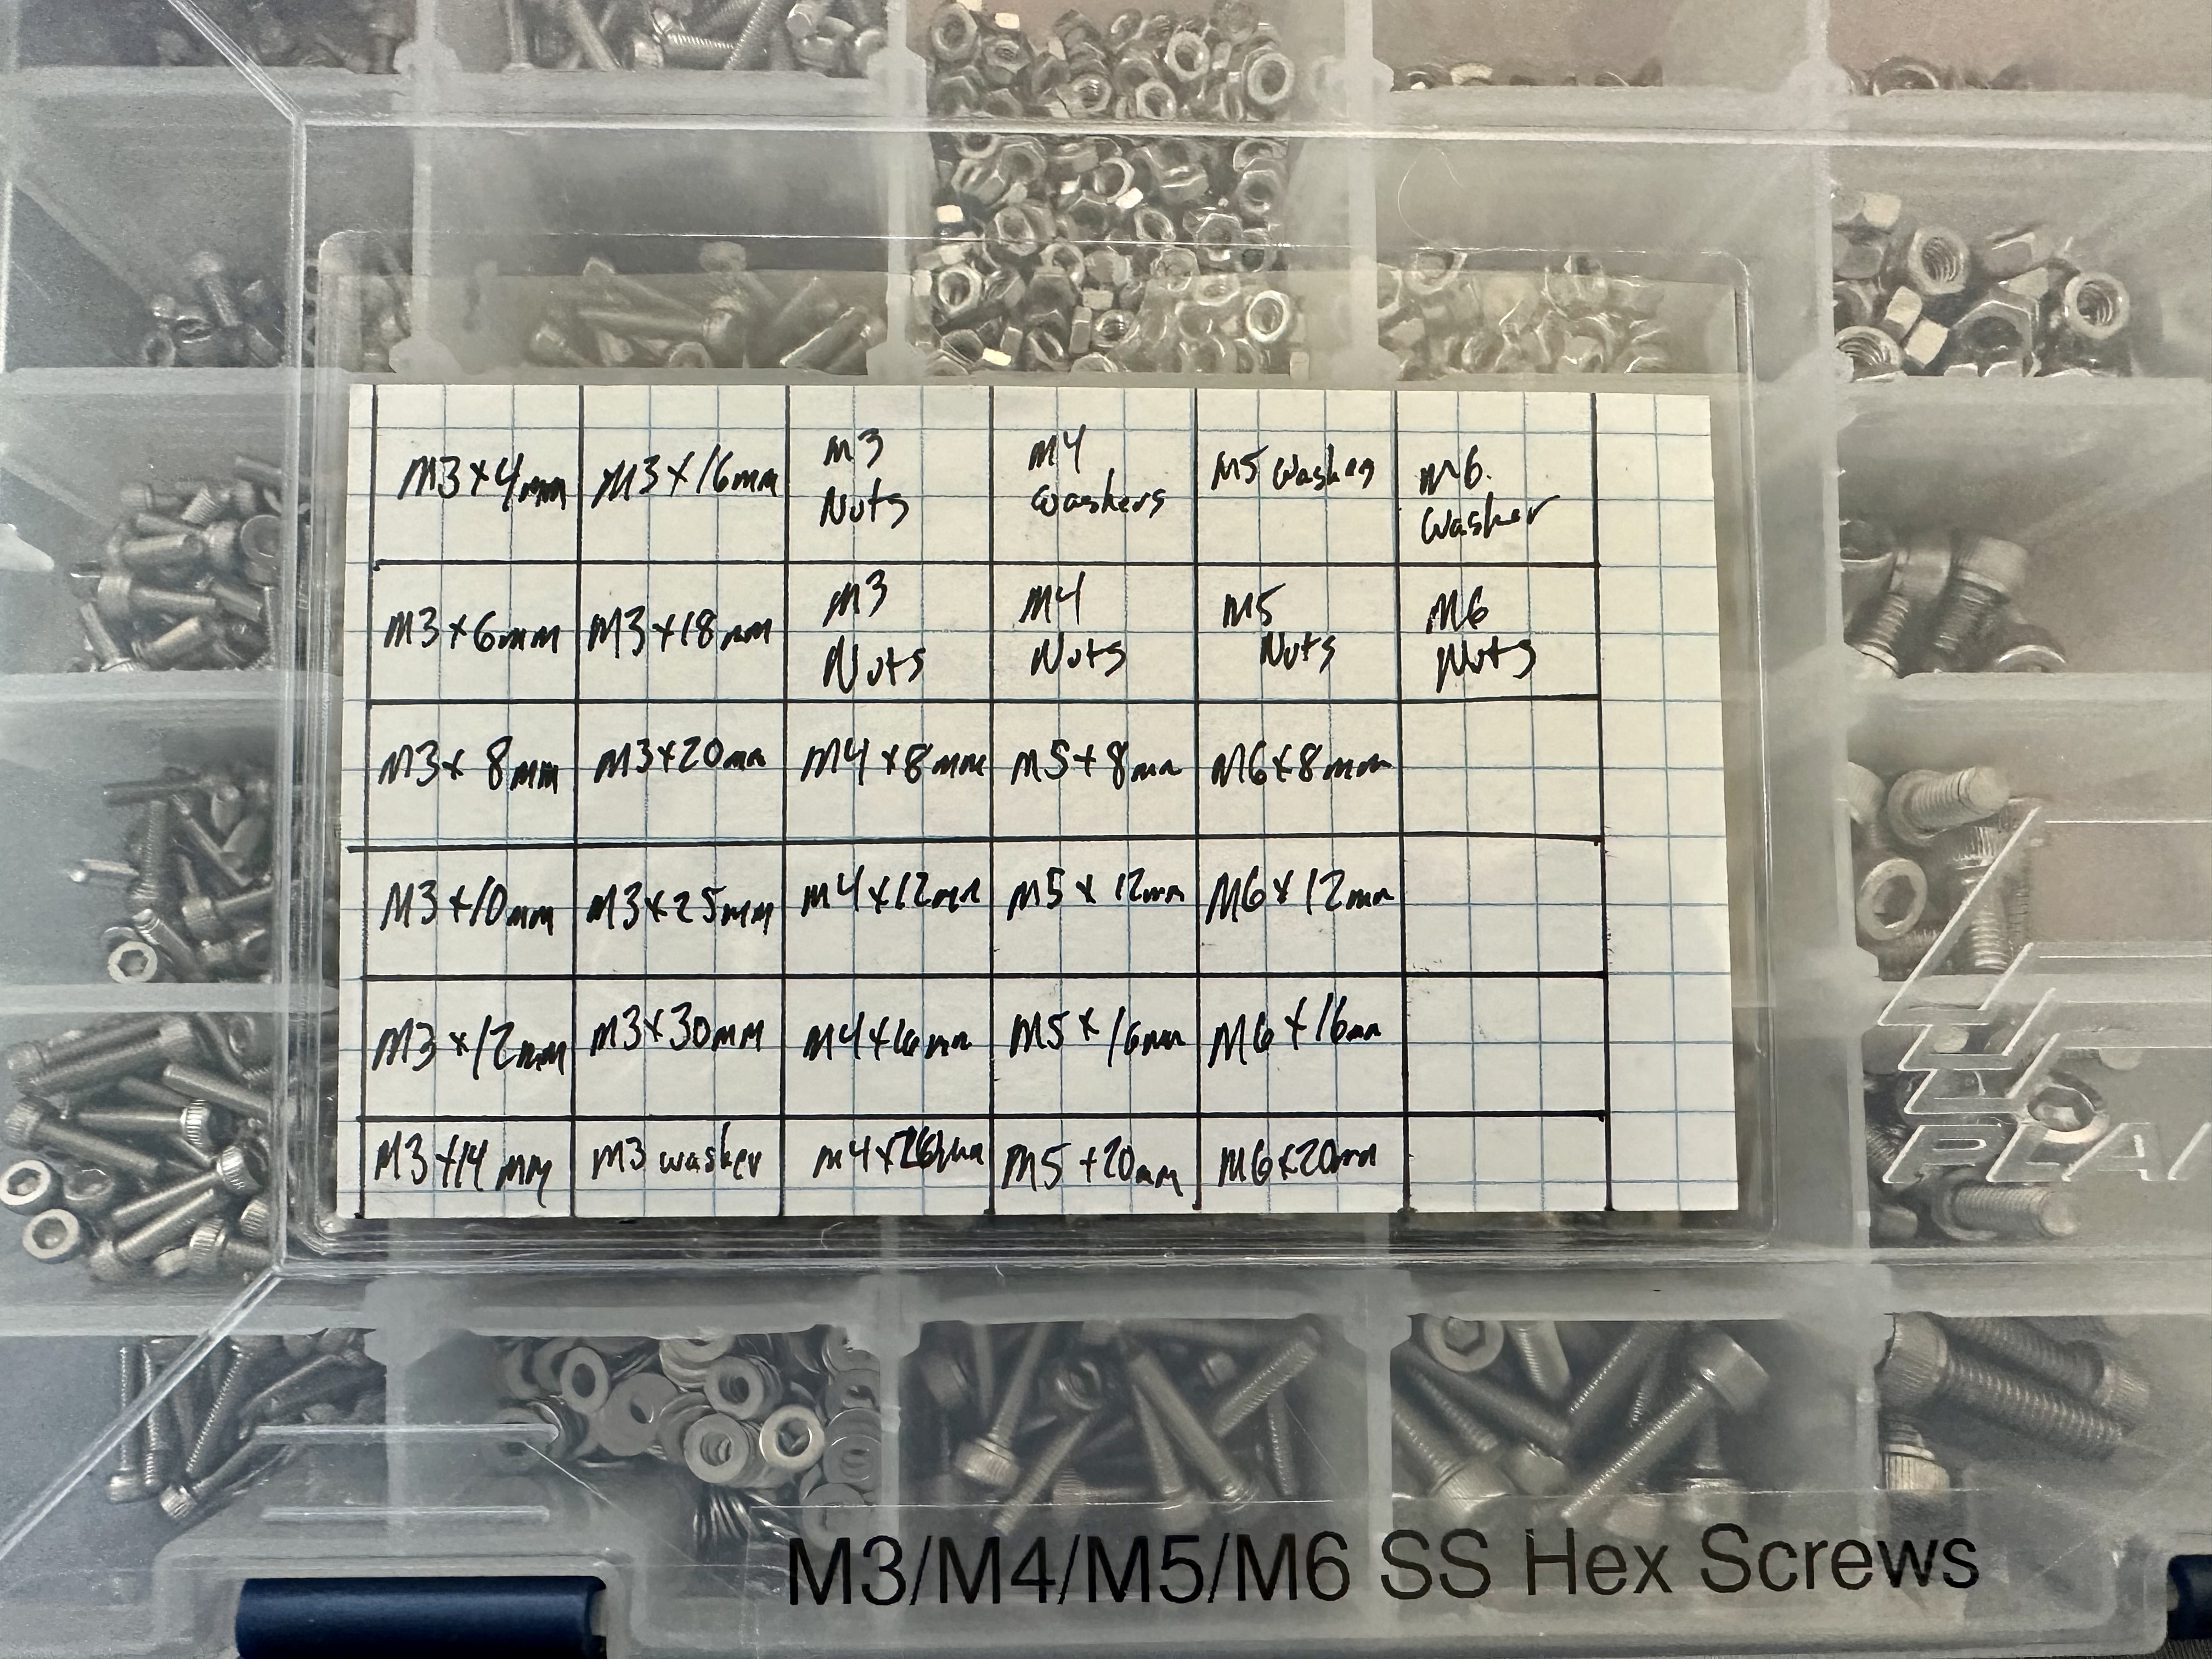 M3x4mm M3x16mm M3 Nuts M4 washers M5 washers M6. washer
M3x6mm M3x18mm M3 Nuts M4 Nuts M5 Nuts M6 Nuts
M3x8mm M3x20mm M4x8mm M5x8mm M6x8mm
M3x10mm M3x25mm M4x12mm M5x12mm M6x12mm
M3x12mm M3x30mm M4x16mm M5x16mm M6x16mm
M3x14mm M3 washer M5x20mm M6x20mm
M3/M4/M5/M6 SS Hex Screws